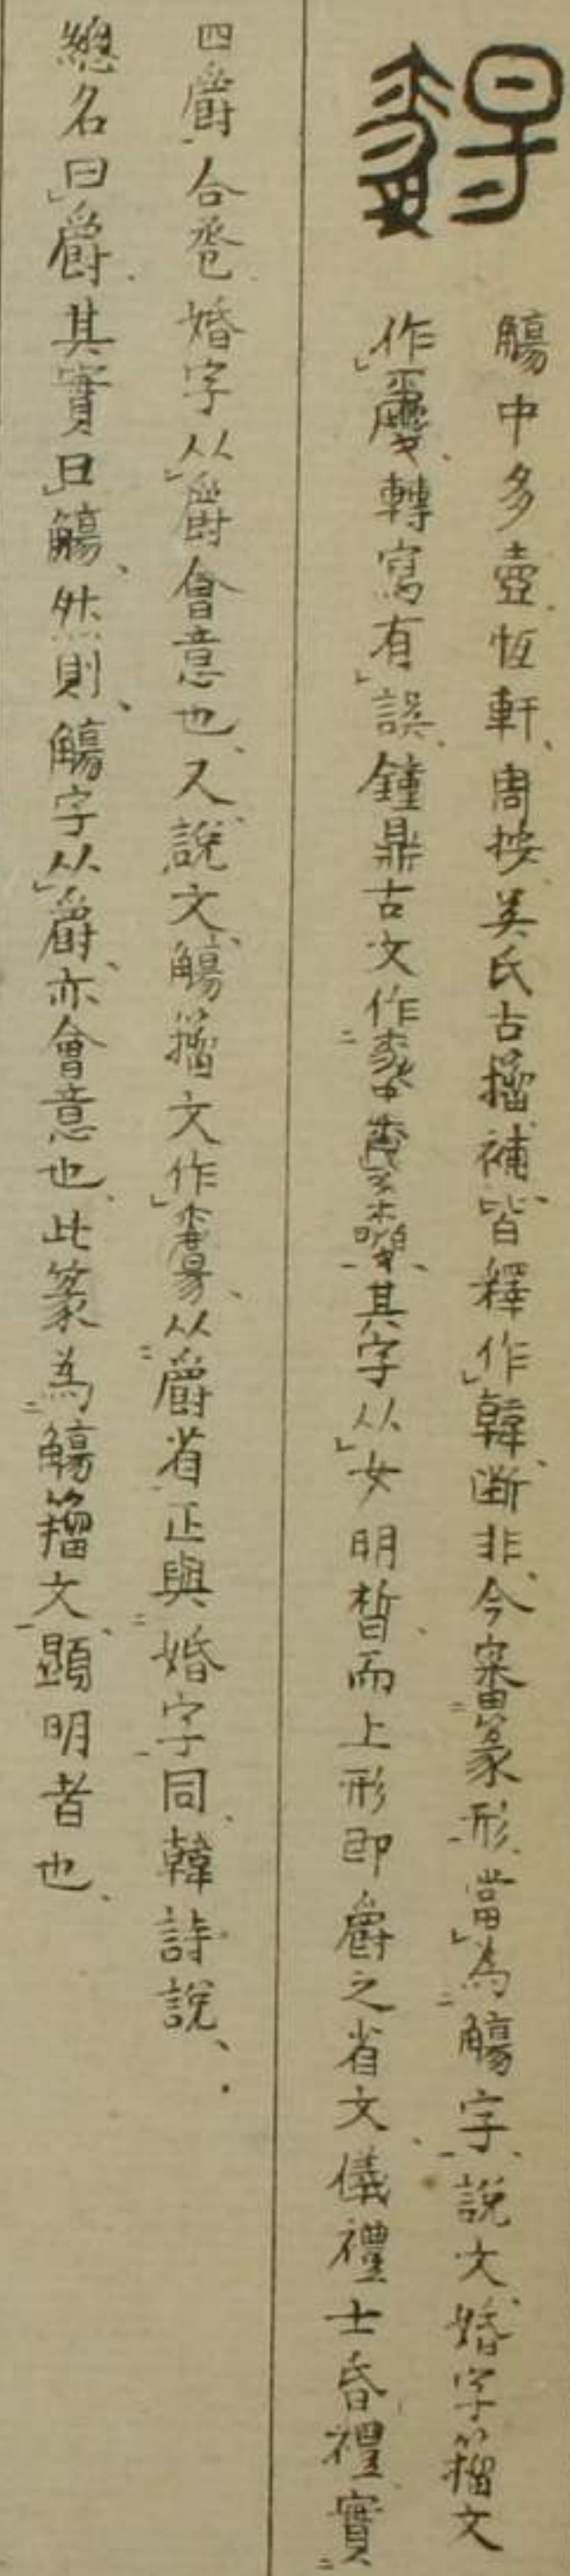 觴中多壺恆軒周按吴氏古籀補皆釋作韓斷非今審篆形當為觴字說文婚字籀文
作㛰轉寫有誤鐘鼎古文作其字从女明晳而上形即爵之省文儀禮士昏禮實
四爵合卺婚字从爵會意也又說文觴籀文作从爵省正與婚字同韓詩說
總名曰爵其實曰觴然則觴字从爵亦會意也此篆為觴籀文顯明者也